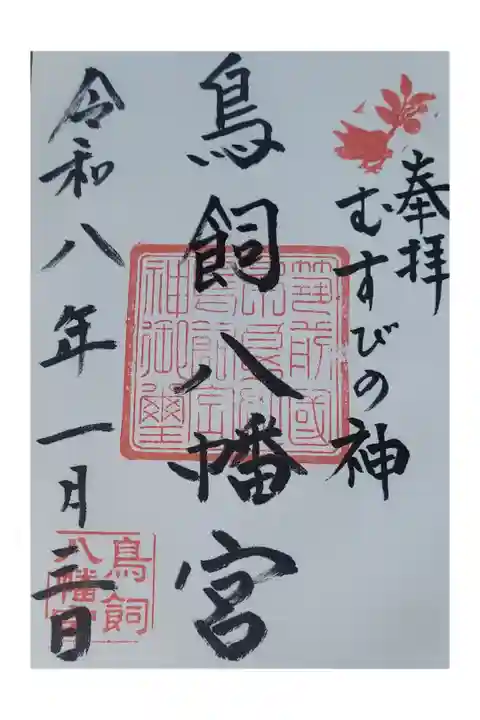 奉拝
むすびの神
鳥飼八幡宮
筑前國
神御璽
令和八年一月三日
鳥飼
八幡宮